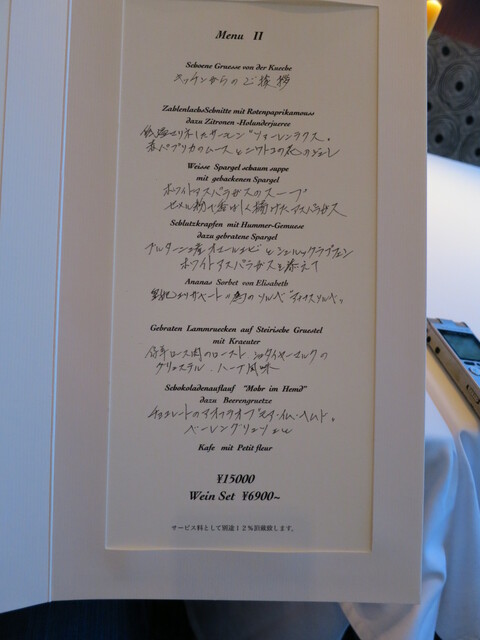 Menu II
Schoene Gruesse von der Kueche
キッチンからのご挨拶
ZahlenlachsSchnitte mit Rotenpaprikamouss
dazu Zitronen -Holunderjueree
赤パプリカのムースとニワトコの花のジュレ
Weisse Spargel schaum suppe
mit gebackenen Spargel
ホワイトアスパラガスのスープ
Schlutzkrapfen mit Hummer-Gemuese
dazu gebratene Spargel
ホワイトアスパラガスを添えて
Ananas Sorbet von Elisabeth
Gebraten Lammruecken auf Steirische Gruestel
mit Kraeuter
仔羊ロース肉のロースト シュタイヤーマルクの
グリュステル ハーブ風味
Schokoladenauflauf "Mohr im Hemd"
dazu Beerengruetze
ベーレングリュッツェ
Kafe mit Petit fleur
¥15000
Wein Set ¥6900~
サービス料として別途12%頂戴致します。